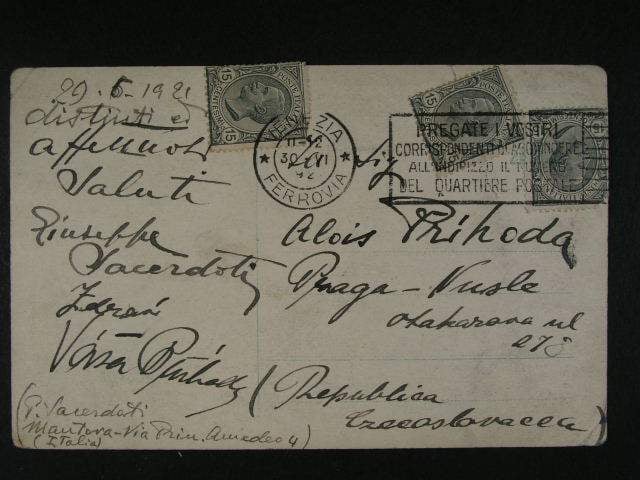 29.5-1921
distinti ed
affettuosi
Saluti
Giuseppe
Sacerdoti
Zdraví
Váša Příhoda
(P. Sacerdoti
Mantova-Via Prin. Amedeo 4
(Italia)
15
POSTE ITALIANE
15
15
VENEZIA
11-12
FERROVIA
PREGATE I VOSTRI
CORRISPONDENTI DI AGGIUNGERE
ALL'INDIRIZZO IL NUMERO
DEL QUARTIERE POSTALE
Sig
Alois Příhoda
Praga-Nusle
Otakarova ul
278
(Republica
Cecoslovacca)